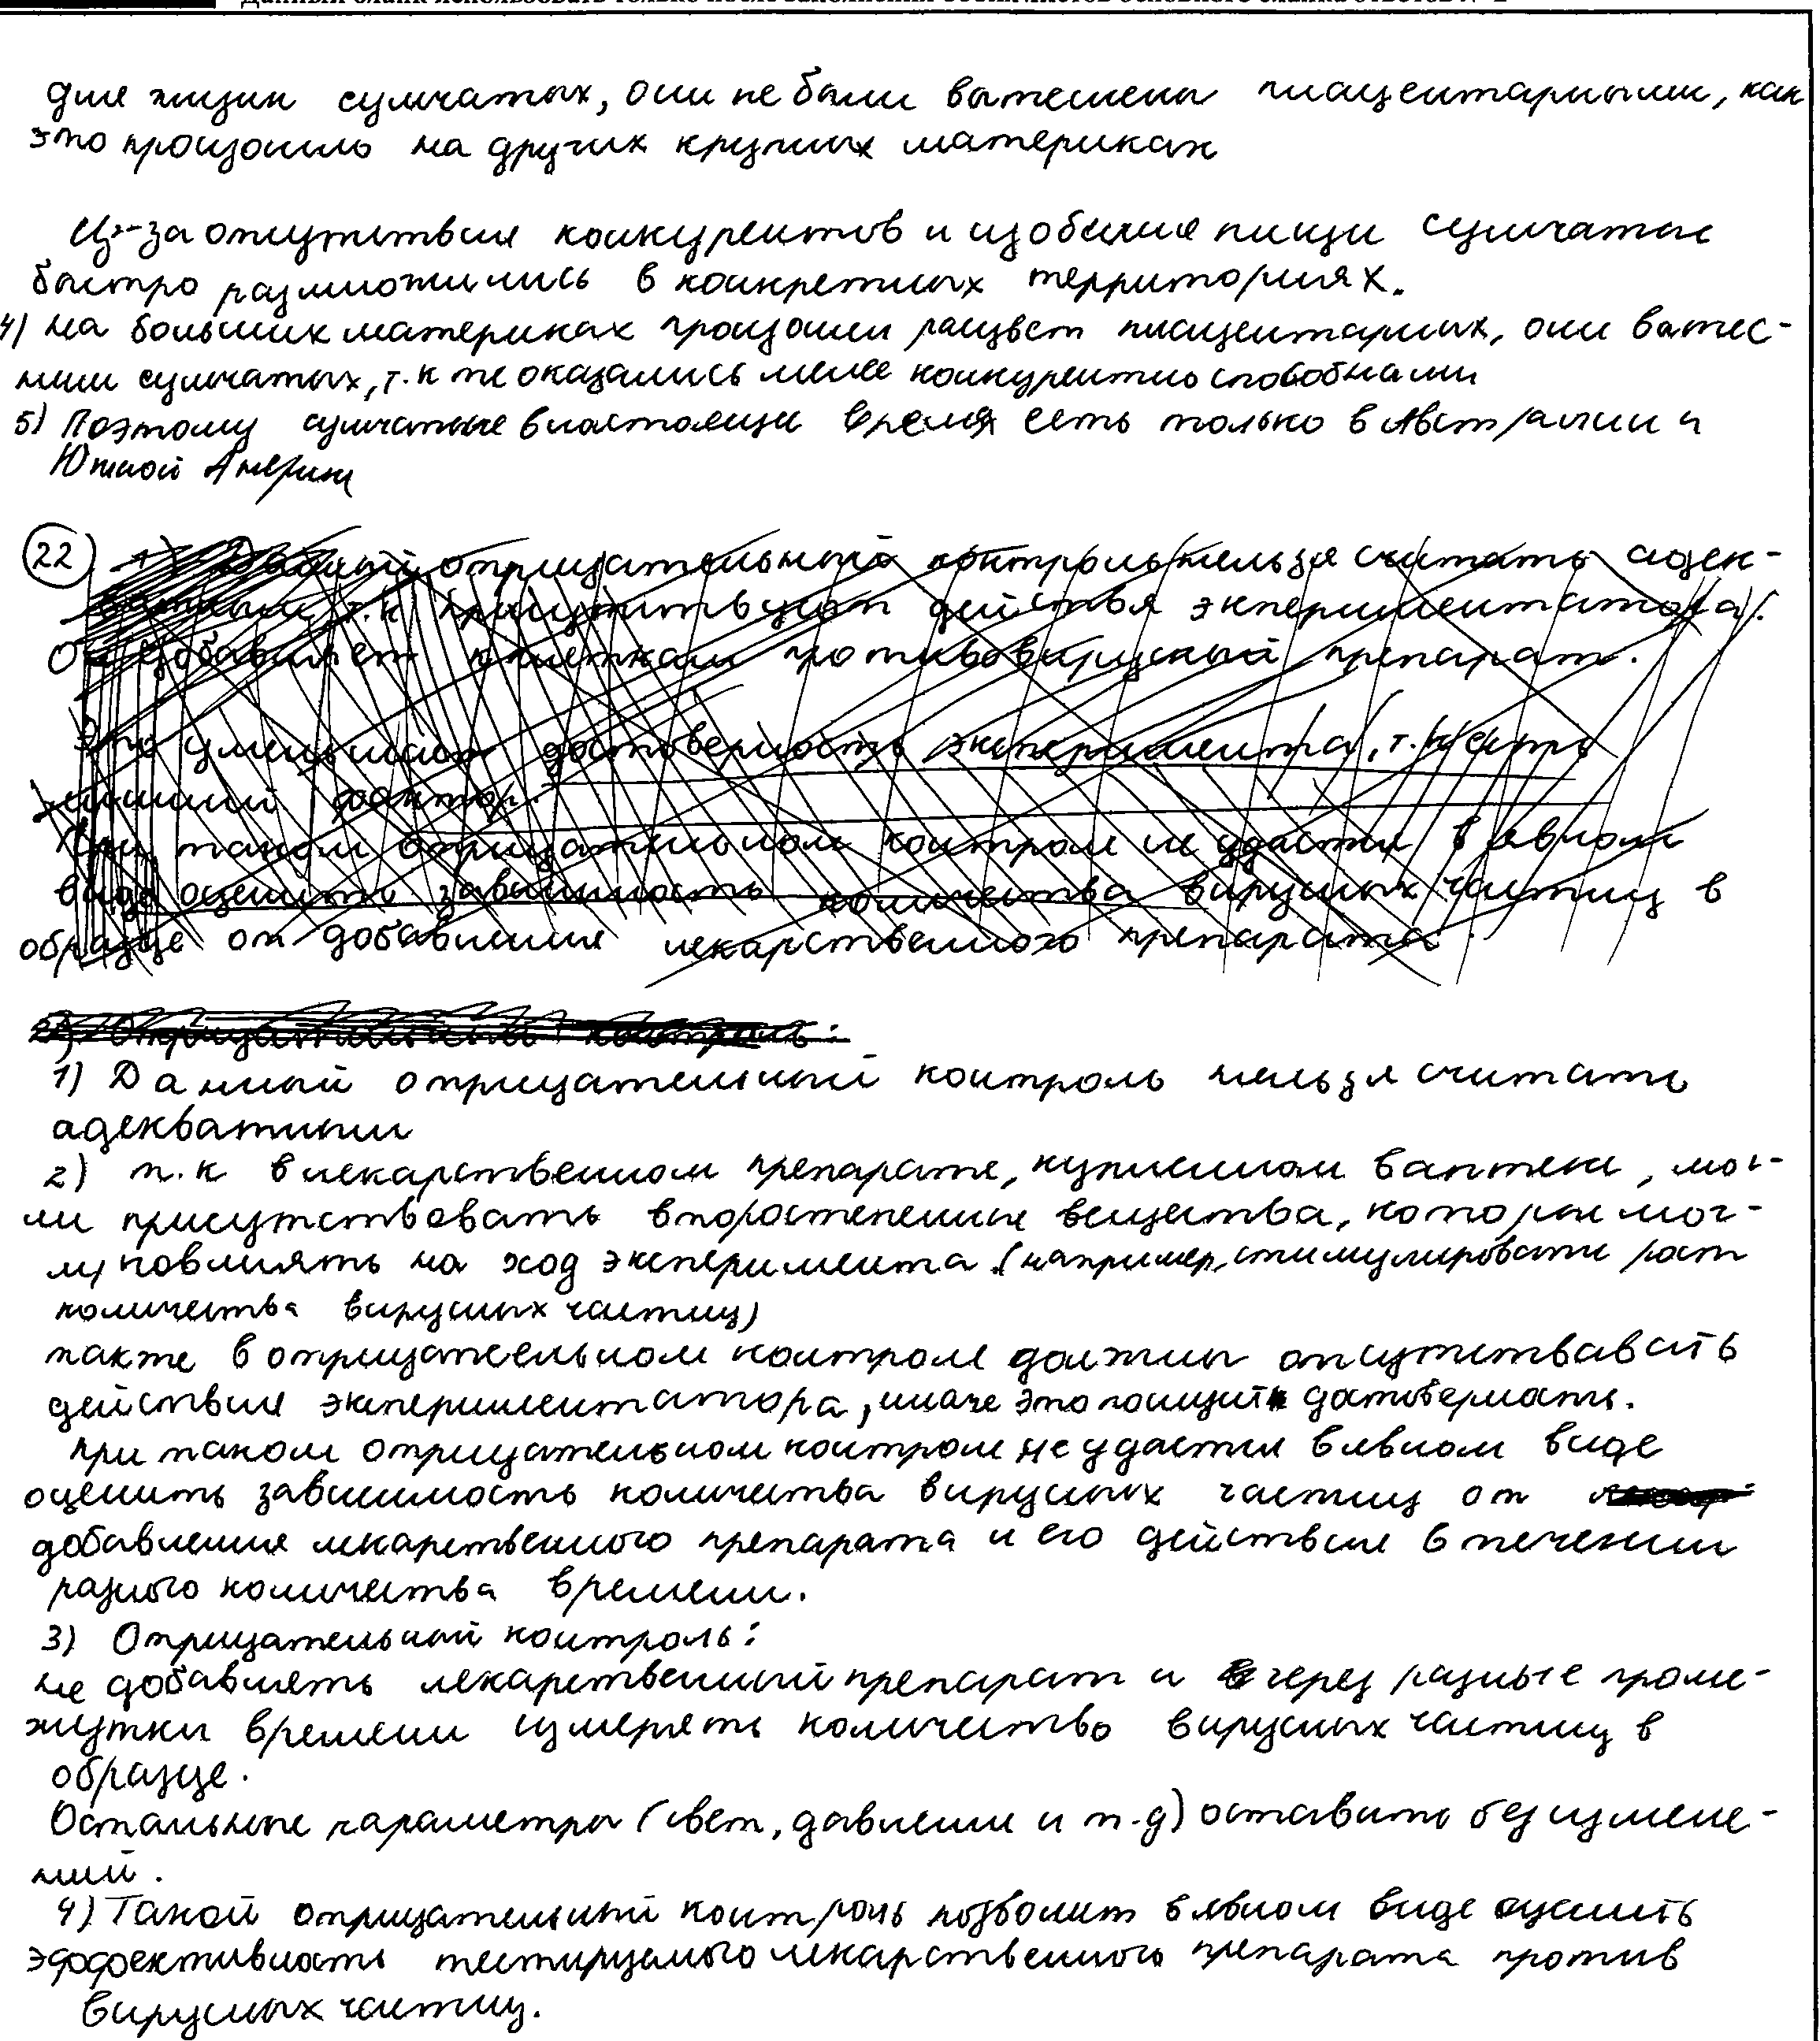 Данный бланк использовать только после заполнения
для жизни сумчатых, они не были вытеснены плацентарными, как
это произошло на других крупных материках
Из-за отсутствия конкурентов и изобилия пищи сумчатые
быстро размножились в конкретных территориях.
4) На больших материках произошел расцвет плацентарных, они вытес-
нили сумчатых, т.к те оказались менее конкурентно способными
5) Поэтому сумчатые в настоящее время есть только в Австралии и
Южной Америке
22) 1) Данный отрицательный контроль нельзя считать адек-
ватным, т.к присутствуют действия экпериментатора.
Он добавляет клеткам противовирусный препарат.
Это уменьшает достоверность экперимента, т.к есть
лишний фактор.
При таком отрицательном контроле не удастся в явном
виде оценить зависимость количества вирусных частиц в
образце от добавления лекарственного препарата.
2) Отрицательный контроль:
1) Данный отрицательный контроль нельзя считать
адекватным
2) т.к в лекарственном препарате, купленном в аптеке, мог-
ли присутствовать второстепенные вещества, которые мог-
ли повлиять на ход эксперимента (например, стимулировать рост
количества вирусных частиц)
также в отрицательном контроле должны отсутствавать
действия экпериментатора, иначе это понизит достоверность.
При таком отрицательном контроле не удастся в явном виде
оценить зависимость количества вирусных частиц от
добавления лекарственного препарата и его действия в течении
разного количества времени.
3) Отрицательный контроль:
не добавлять лекарственный препарат и через разные проме-
жутки времени измерять количество вирусных частиц в
образце.
Остальные параметры (свет, давление и т.д) оставить без измене-
ний.
4) Такой отрицательный контроль позволит в явном виде оценить
эффективность тестируемого лекарственного препарата против
вирусных частиц.